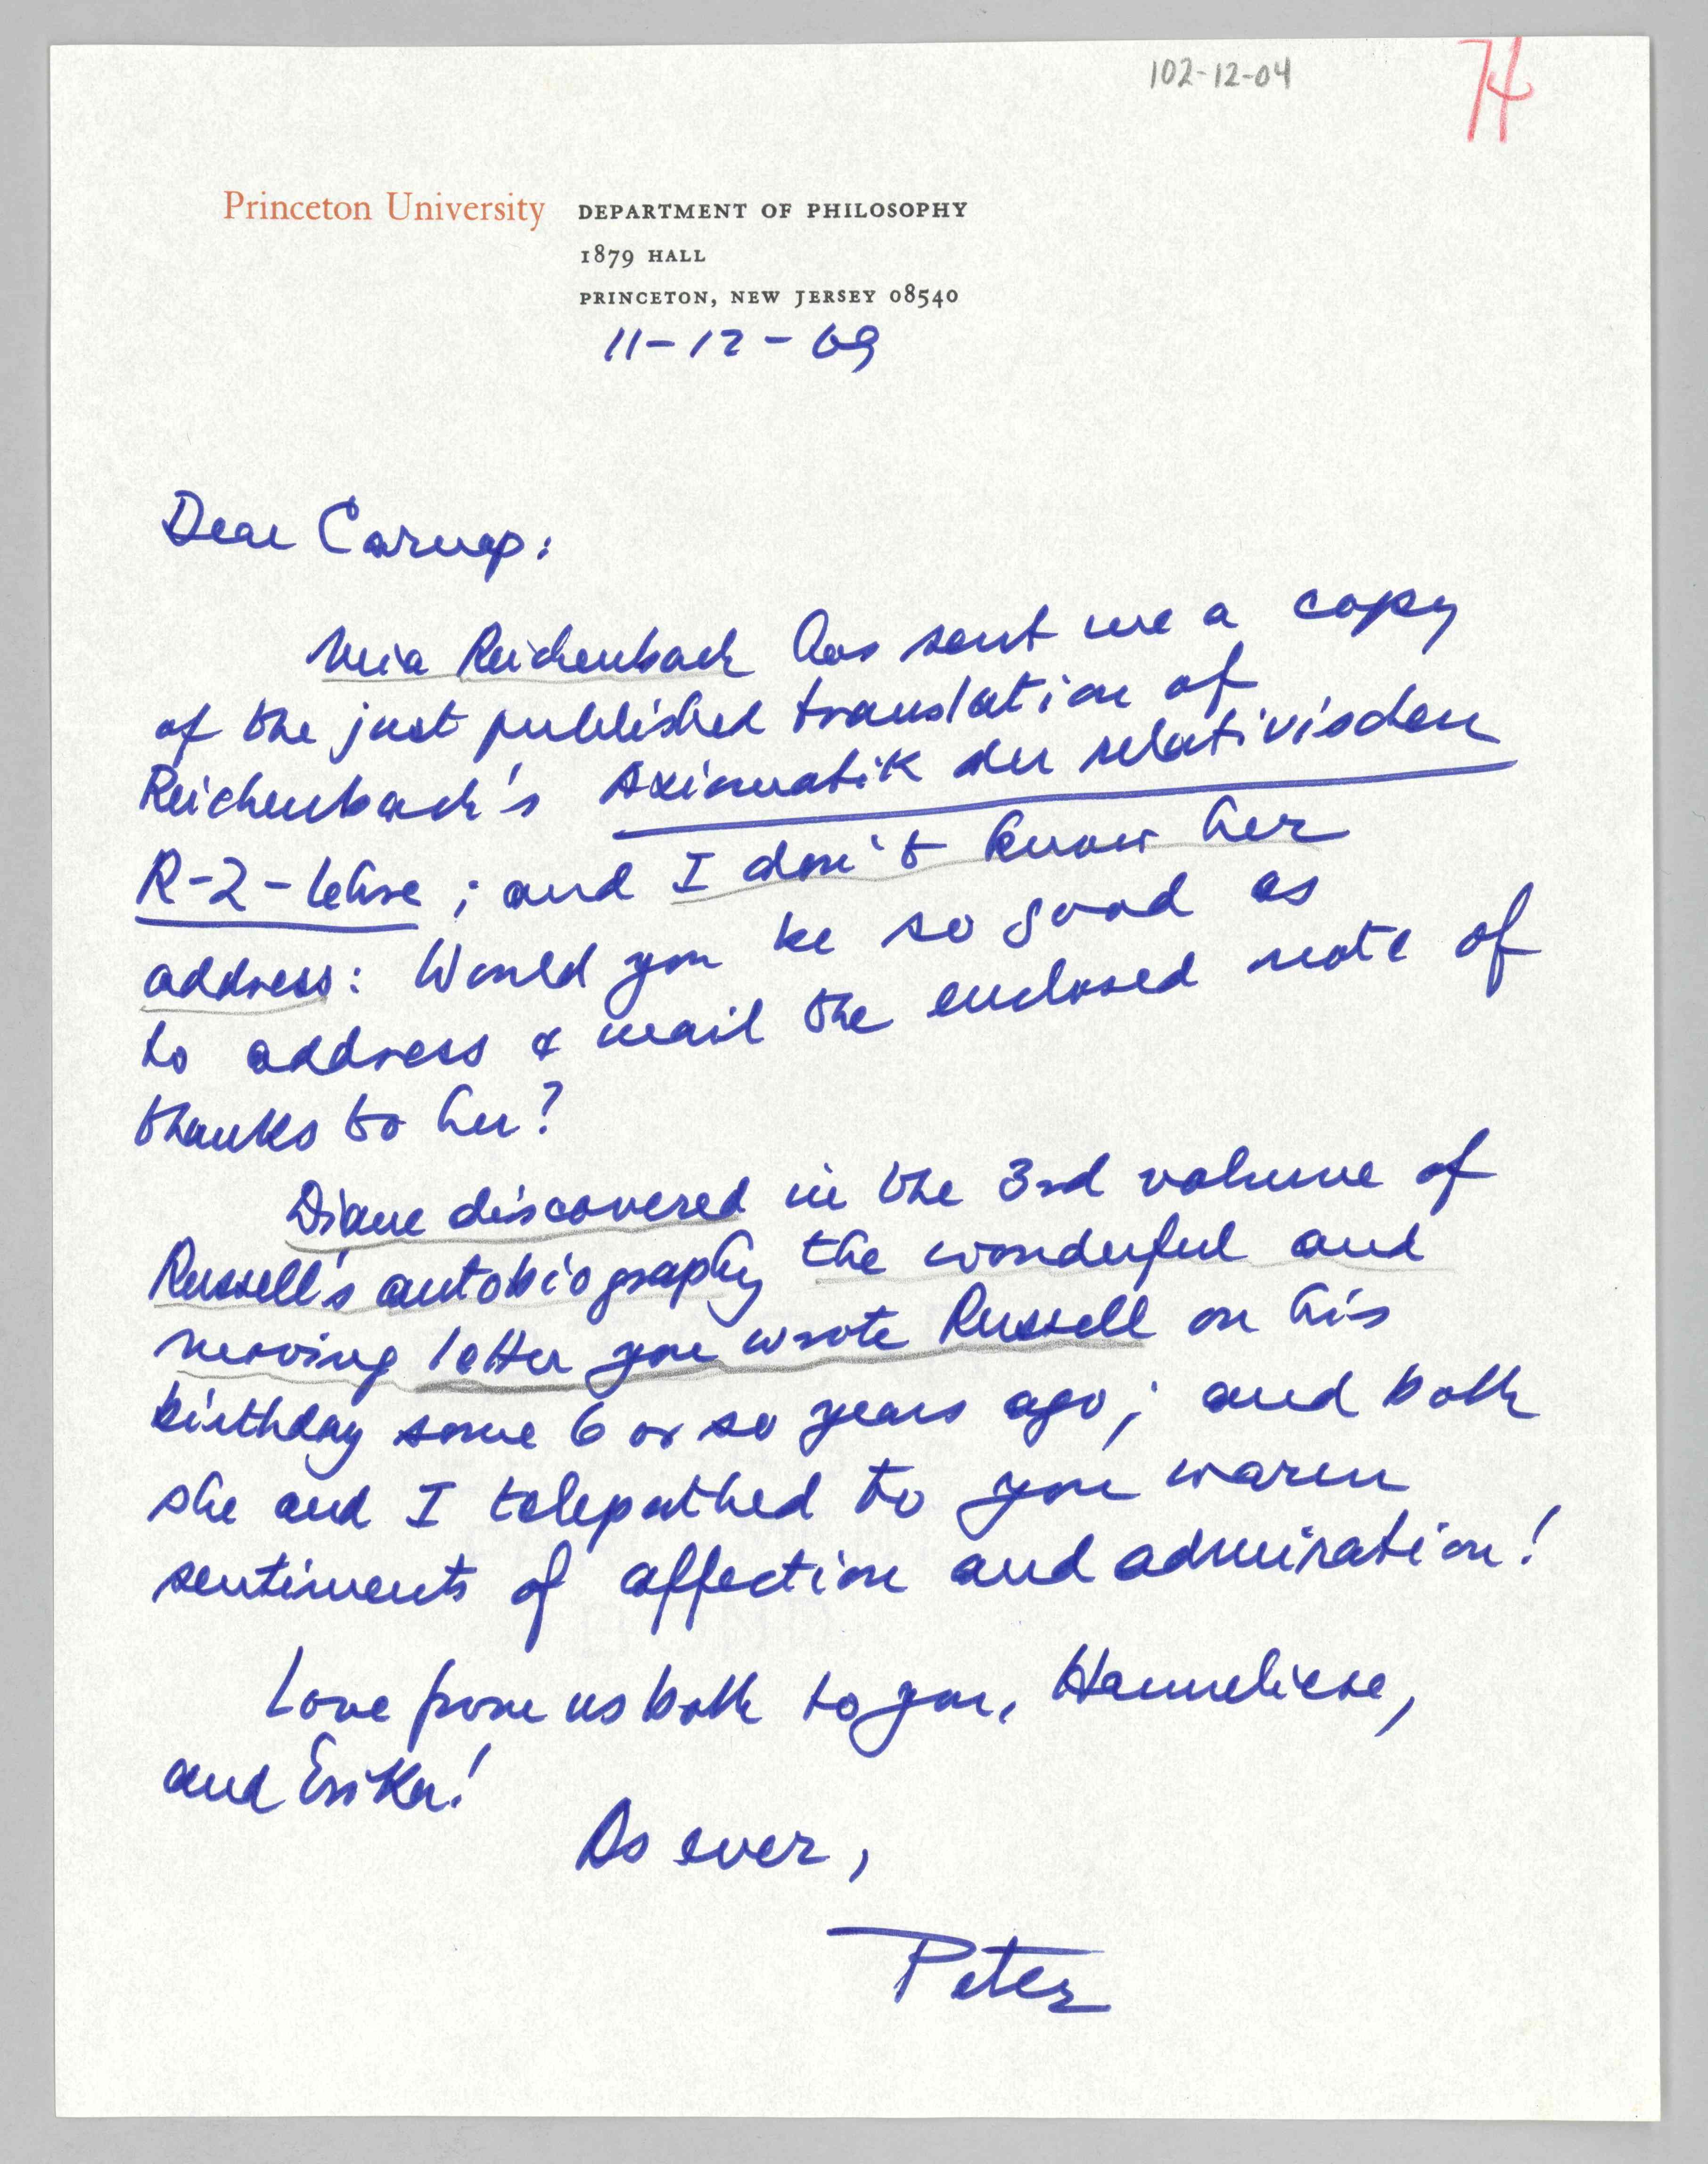 102-12-04
H
Princeton University DEPARTMENT OF PHILOSOPHY
1879 HALL
PRINCETON, NEW JERSEY 08540
11-12-69
Dear Carnap:
Maria Reichenbach has sent me a copy
of the just published translation of
Reichenbach's Axiomatik der relativischen
R-Z-Lehre; and I don't know her
address: Would you be so good as
to address & mail the enclosed note of
thanks to her?
Diane discovered in the 3rd volume of
Russell's autobiography the wonderful and
moving letter you wrote Russell on his
birthday some 6 or so years ago; and both
she and I telepathed to you warm
sentiments of affection and admiration!
Love from us both to you, Hanneliese,
and Erika!
As ever,
Peter